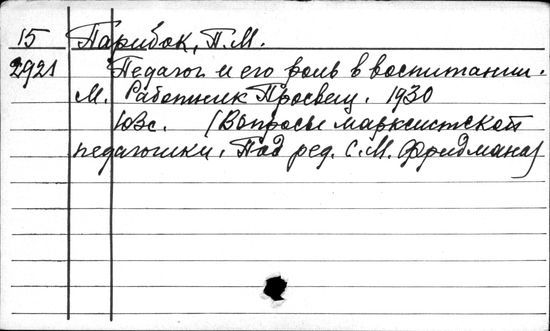 15 Парибок, П.М.
2921 Педагог и его роль в воспитании.
М. Работник Просвещ. 1930
с. (Вопросы марксистской
педагогики. Под ред. С.М. Фридмана)